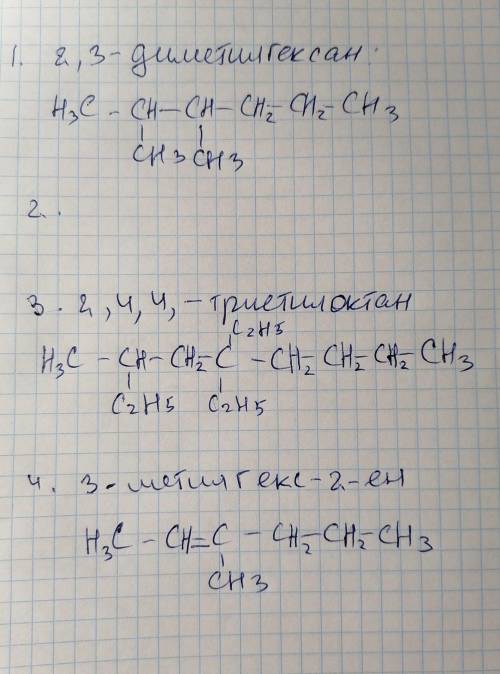 1. 2,3-диметилгексан.
H₃C - CH - CH - CH₂ - CH₂ - CH3
CH3 CH3
2.
3. 2,4,4,-триетилоктан
C₂H5
H₃C - CH - CH₂ - C - CH₂ - CH₂ - CH₂ - CH3
C₂H5 C₂H5
4. 3-метилгекс-2-ен
H₃C - CH = C - CH₂ - CH₂ - CH3
CH3